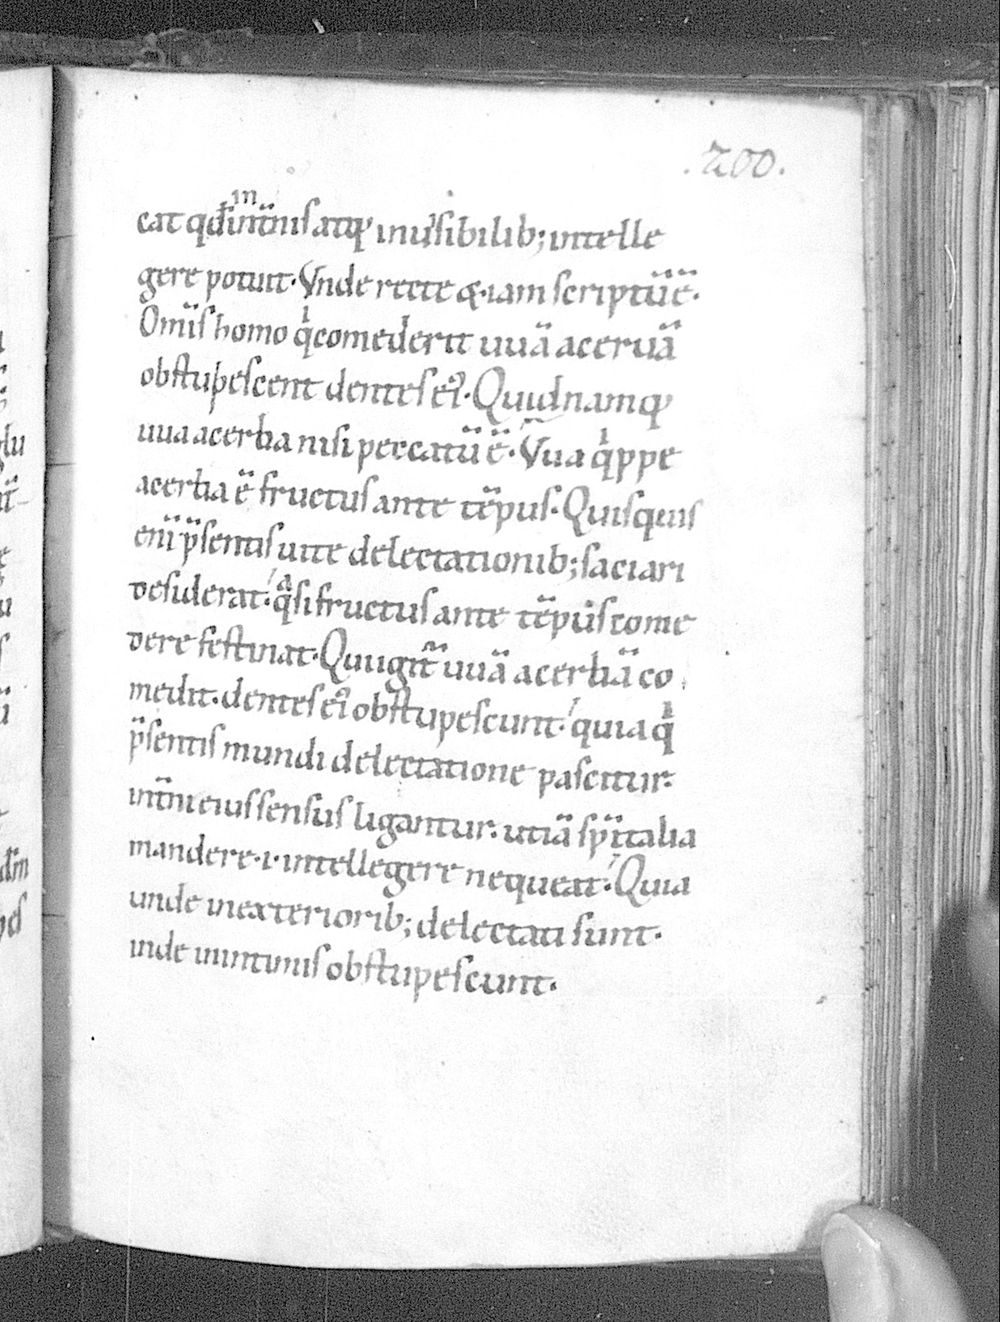 .200.
cat qđ in int̄nis atq; inuisibilib; intelle
gere potuit. Vnde recte & iam scriptū ē.
Om̄is homo qͥ comederit uuā aceruā
obstupescent dentes eiꝰ. Quid namq;
uua acerba nisi peccatū ē. Vua qͥppe
acerba ē fructus ante tēpus. Quisquis
eni̅ p̄sentis uite delectationib; saciari
desiderat. qͣsi fructus ante tēpus come
dere festinat. Qui igit̄ uuā acerbā co
medit. dentes eiꝰ obstupescunt. quia qͥ
p̄sentis mundi delectatione pascitur.
int̄ni eius sensus ligantur. ut iā sp̄italia
mandere .i. intellegere nequeat. Quia
unde in exteriorib; delectati sunt.
inde in intimis obstupescunt.